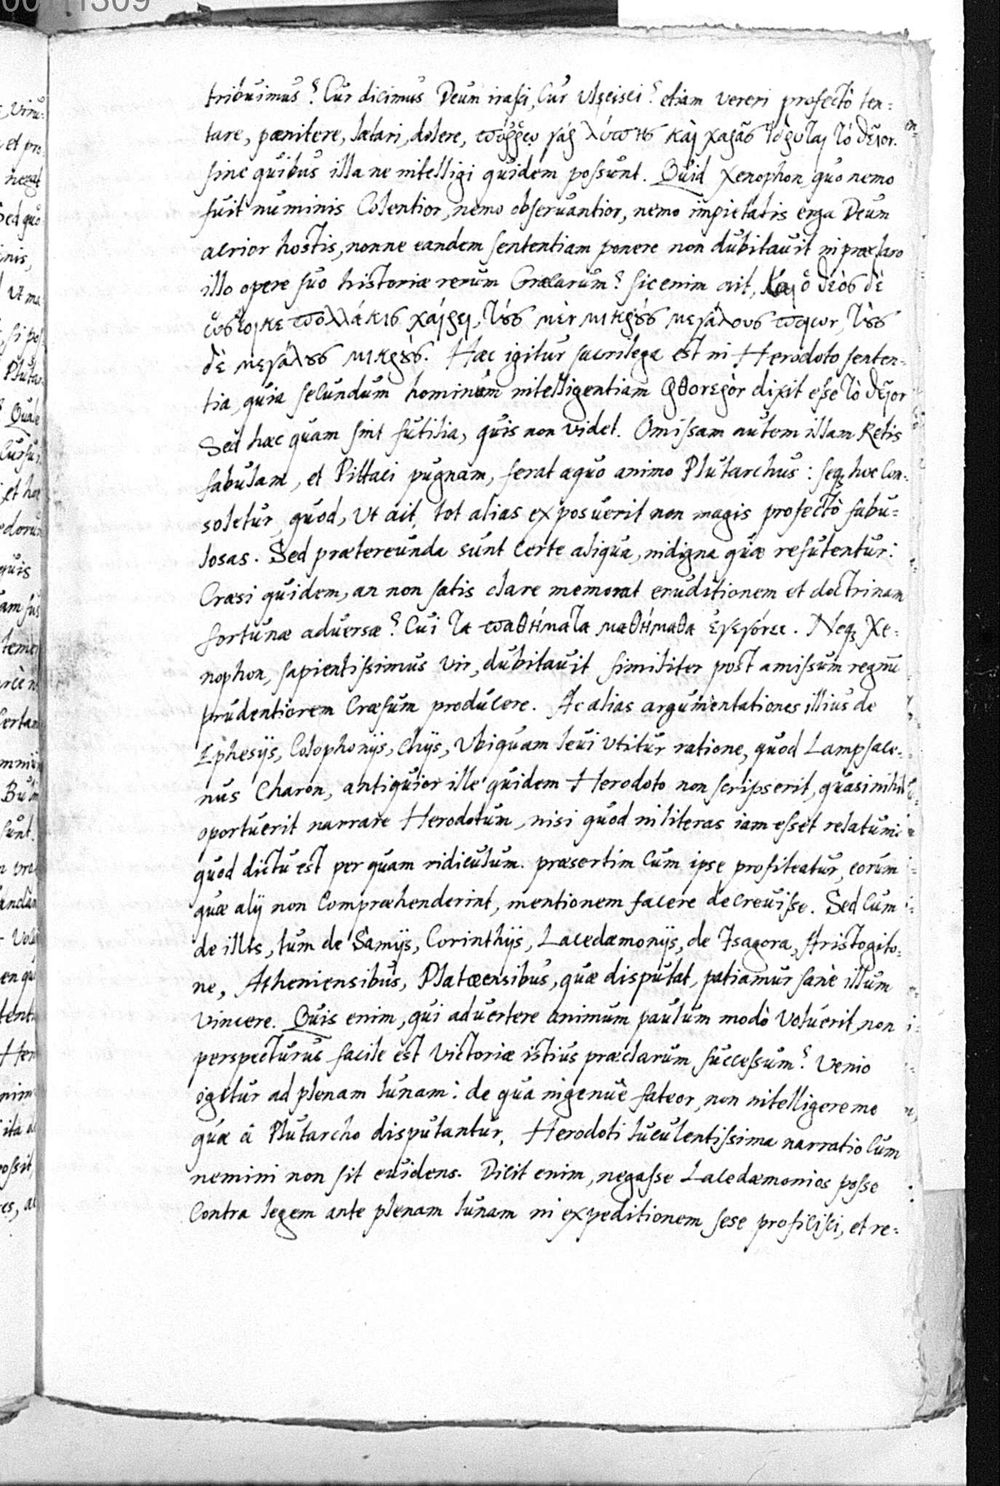 tribuimus? Cur dicimus Deum irasci, Cur ulcisci? etiam vereri profectò ten-
tare, pænitere, lætari, dolere, πόρρω γὰρ λύπης καὶ χαρᾶς ἵδρυται τὸ θεῖον.
sine quibus illa ne intelligi quidem possunt. Quid Xenophon, quo nemo
fuit numinis Colentior, nemo observantior, nemo impietatis erga Deum
acrior hostis, nonne eandem sententiam ponere non dubitavit in præclaro
illo opere suo historiæ rerum Græcarum? sic enim ait, Καὶ ὁ θεὸς δὲ
ὡς ἔοικε πολλάκις χαίρει, τὸς μὲν μικρὸς μεγάλους ποιῶν, τὸς
δὲ μεγάλȣς μικρὸς. Hæc igitur sacrilega est in Herodoto senten-
tia, quia secundum hominum intelligentiam φθονερὸν dixit esse τὸ θεῖον
Sed hæc quam sint futilia, quis non videt. Omissam autem illam Retis
fabulam, et Pittaci pugnam, ferat æquo animo Plutarchus: seq; hoc Con-
soletur, quod, ut ait, tot alias exposuerit non magis profectò fabu-
losas. Sed prætereunda sunt Certe aliqua, indigna quæ refutentur:
Cræsi quidem, an non satis clare memorat eruditionem et doctrinam
fortunæ adversæ? Cui τα παθήματα μαθήμαθα ἐγεγόνει. Neq; Xe-
nophon, sapientissimus vir, dubitavit similiter post amissum regnū
prudentiorem Cræsum producere. At alias argumentationes illius de
Ephesijs, Colophonijs, Chijs, Ubi quam levi utitur ratione, quod Lampsace-
nus Charon, antiquior ille quidem Herodoto non scripserit, quasi nihil
oportuerit narrare Herodotum, nisi quod in literas iam esset relatum:
quod dictu est per quam ridiculum. præsertim Cum ipse profiteatur, eorum
quæ alij non Compræhenderint, mentionem facere decrevisse. Sed Cum
de illis, tum de Samijs, Corinthijs, Lacedæmonijs, de Isagora, Aristogito-
ne, Atheniensibus, Platæensibus, quæ disputat, patiamur sanè illum
vincere. Quis enim, qui advertere animum paulum modò voluerit, non
perspecturus facile est Victoriæ istius præclarum successum? Venio
igitur ad plenam lunam: de qua ingenuè fateor, non intelligere me
quæ à Plutarcho disputantur, Herodoti luculentissima narratio Cum
nemini non sit evidens. Dicit enim, negasse Lacedæmonios posse
Contra legem ante plenam lunam in expeditionem sese proficisci, et re-